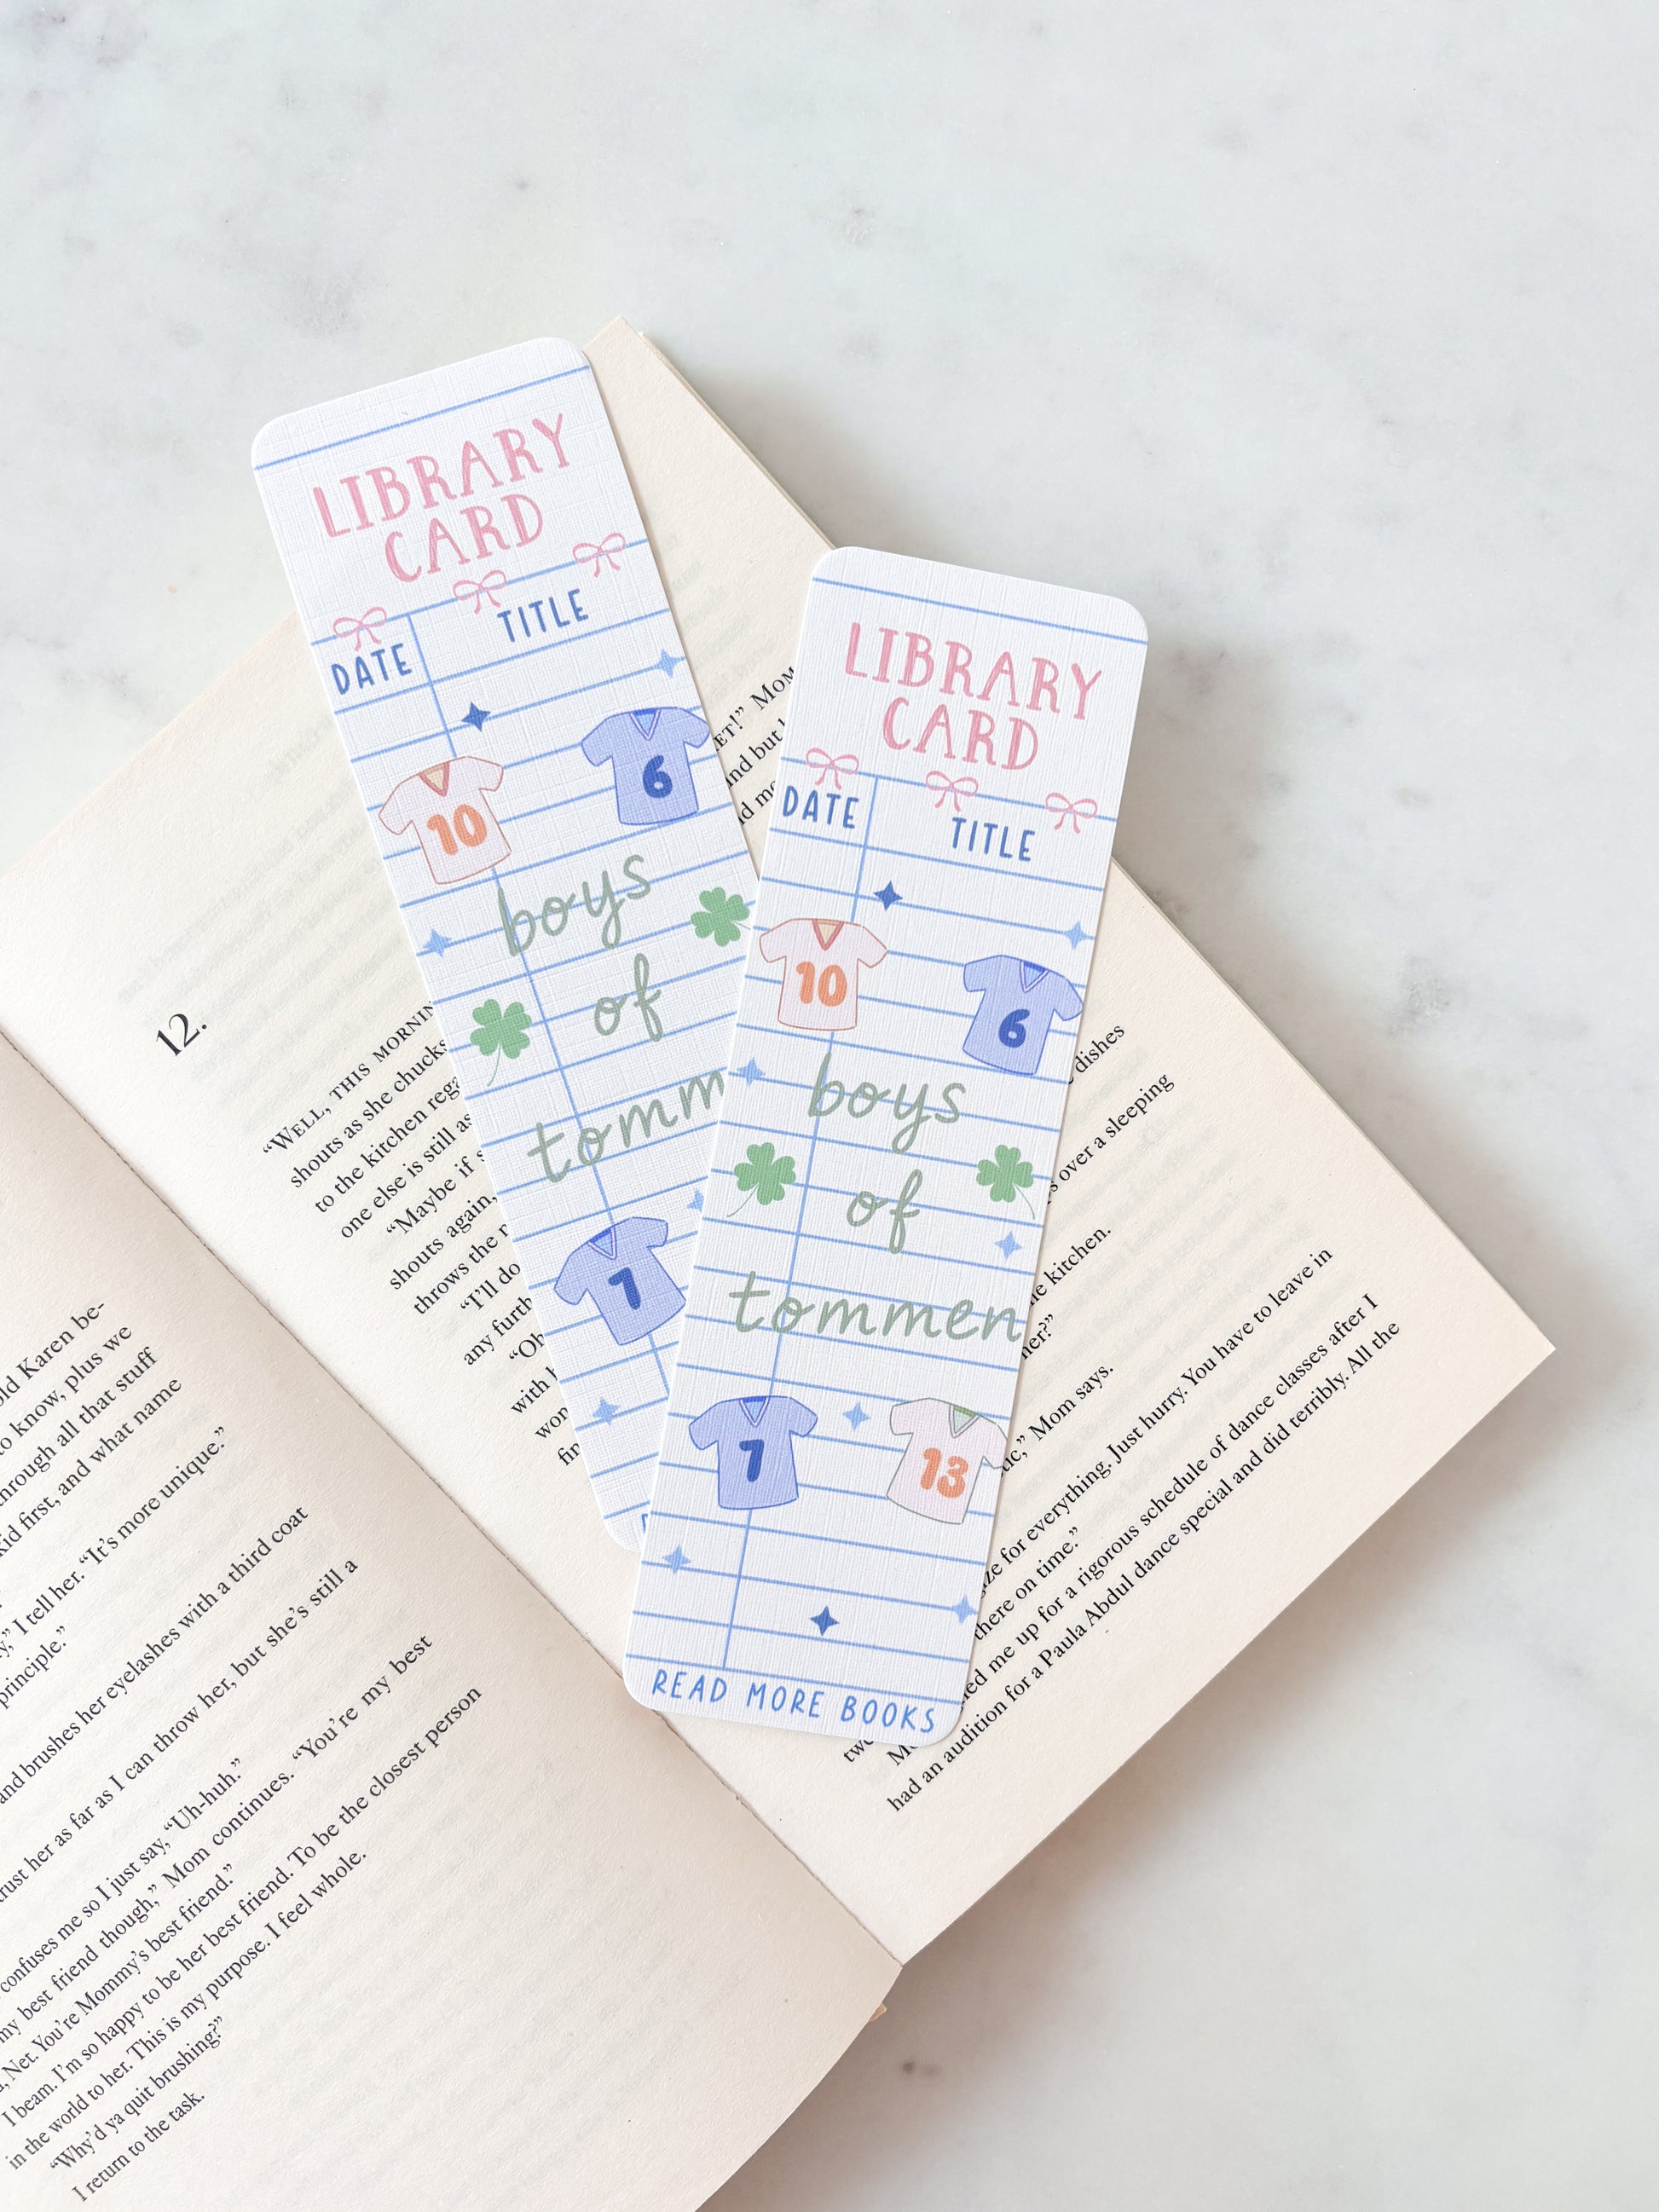 LIBRARY
CARD
DATE TITLE
10 6
boys
of
tomm
7
LIBRARY
CARD
DATE TITLE
10 6
boys
of
tommen
7 13
READ MORE BOOKS
12.
“WELL, THIS MORNIN
shouts as she chucks
to the kitchen
one else is still as
“Maybe if
shouts again,
throws the
“I’ll do
any furth
“Oh
with
ET!” MOM
and but
dishes
over a sleeping
kitchen.
Mom says.
for everything. Just hurry. You have to leave in
there on time.”
me up for a rigorous schedule of dance classes after I
had an audition for a Paula Abdul dance special and did terribly. All the
old Karen be-
to know, plus we
through all that stuff
kid first, and what name
I tell her. “It’s more unique.”
principle.”
and brushes her eyelashes with a third coat
trust her as far as I can throw her, but she’s still a
confuses me so I just say, “Uh-huh.”
my best friend though,” Mom continues. “You’re my best
Net. You’re Mommy’s best friend.”
I beam. I’m so happy to be her best friend. To be the closest person
in the world to her. This is my purpose. I feel whole.
“Why’d ya quit brushing?”
I return to the task.